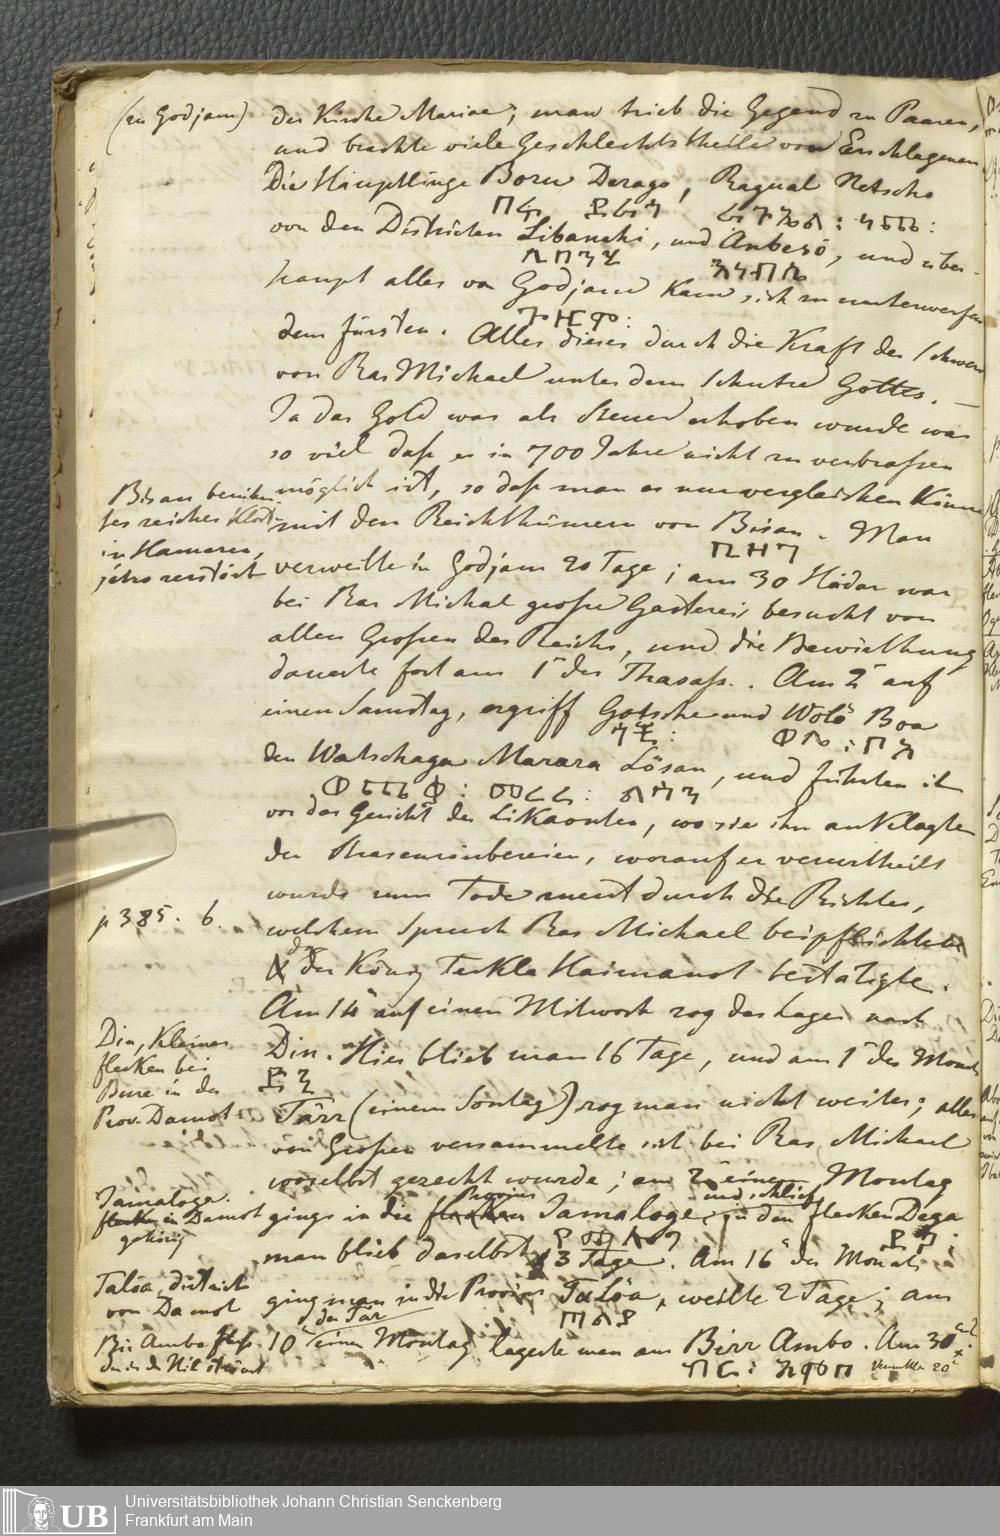 (in Godjam)
der Kirche Mariae; man trieb die Gegend zu Paaren,
und brachte viele Geschlechtstheile von Erschlagenen
Die Häuptlinge Boru Derago, Ragual Netscho
von den Districten Libanchi, und Anbesö, und über-
haupt alles von Godjam kam sich zu unterwerfen
dem Fürsten. Alles dieses durch die Kraft des Schwer
von Ras Michael unter dem Schutze Gottes. —
Ja das Gold was als Steuer erhoben wurde war
so viel daß es in 700 Jahre nicht zu verbrassen
möglich ist, so daß man es nur vergleichen könn
mit den Reichthümern von Bisan. Man
ቢዘን
Bisan berühm-
tes reiches Klost
in Hamasen,
jetzo zerstört
verweilte in Godjam 20 Tage; am 30 Hädar war
bei Ras Michal große Gasterei, besucht von
allen Großen des Reichs, und die Bewirthung
dauerte fort am 1 des Thasass. Am 2 auf
einen Samstag, ergriff Gotsche und Wolö Boa
den Watschaga Marara Lösan, und führten ih
vor das Gericht der Likaonten, wo sie ihn anklagte
der Strasenräubereien, worauf er verurtheilt
wurde zum Tode durch die Richter,
p 385. 6.
welchem Spruch Ras Michael beipflichtete
der König Tekla Haimanot bestätigte.
Am 14 auf einen Mitwoch zog das Lager nach
Din. Hier blieb man 16 Tage, und am 1 des Monats
ዲን
Din, kleiner
flecken bei
Bure in der
Prov. Damot
Tärr (einem Sontag) zog man nicht weiter; alles
von Großen versammelte sich bei Ras Michael
woselbst gezecht wurde; am 2 einem Montag
Jamaloge.
flecken in Damot
gehörig
gings in die Provinz Jamaloge und schlief in den flecken Dega
man blieb daselbst 3 Tage. Am 16 des Monats
Talöa, district
von Damot
ging man in die Provinz Talöa, weilte 2 Tage; am
der Tär
10 einen Montag lagerte man am Birr Ambo. Am 30
Bir Ambo fluss
der in den Nil strömt
Universitätsbibliothek Johann Christian Senckenberg
Frankfurt am Main
UB